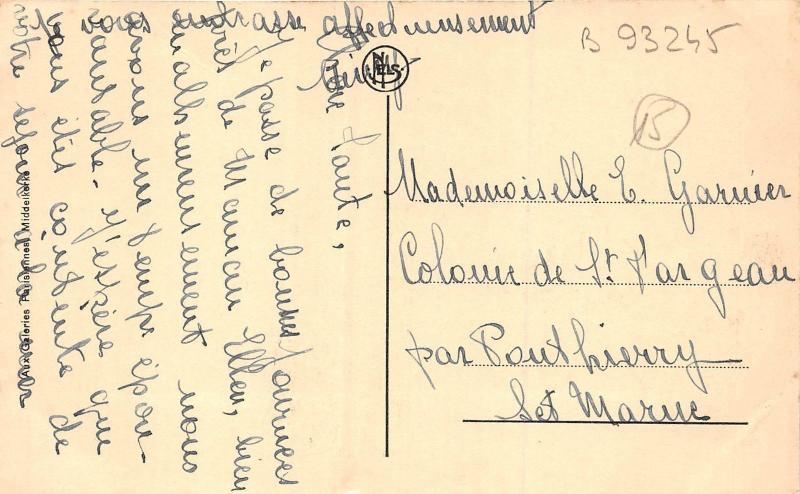 Chère Tante,
Je passe de bonnes journées
près de Maman Ellen, bien
malheureusement nous
avons un temps épou-
vantable. J'espère que
vous êtes contente de
votre séjour
vous embrasse affectueusement
NELS
B 93245
15
Mademoiselle E. Garnier
Colonie de St. Fargeau
par Ponthierry
Set Marne
Aux Galeries Parisiennes, Middelkerke